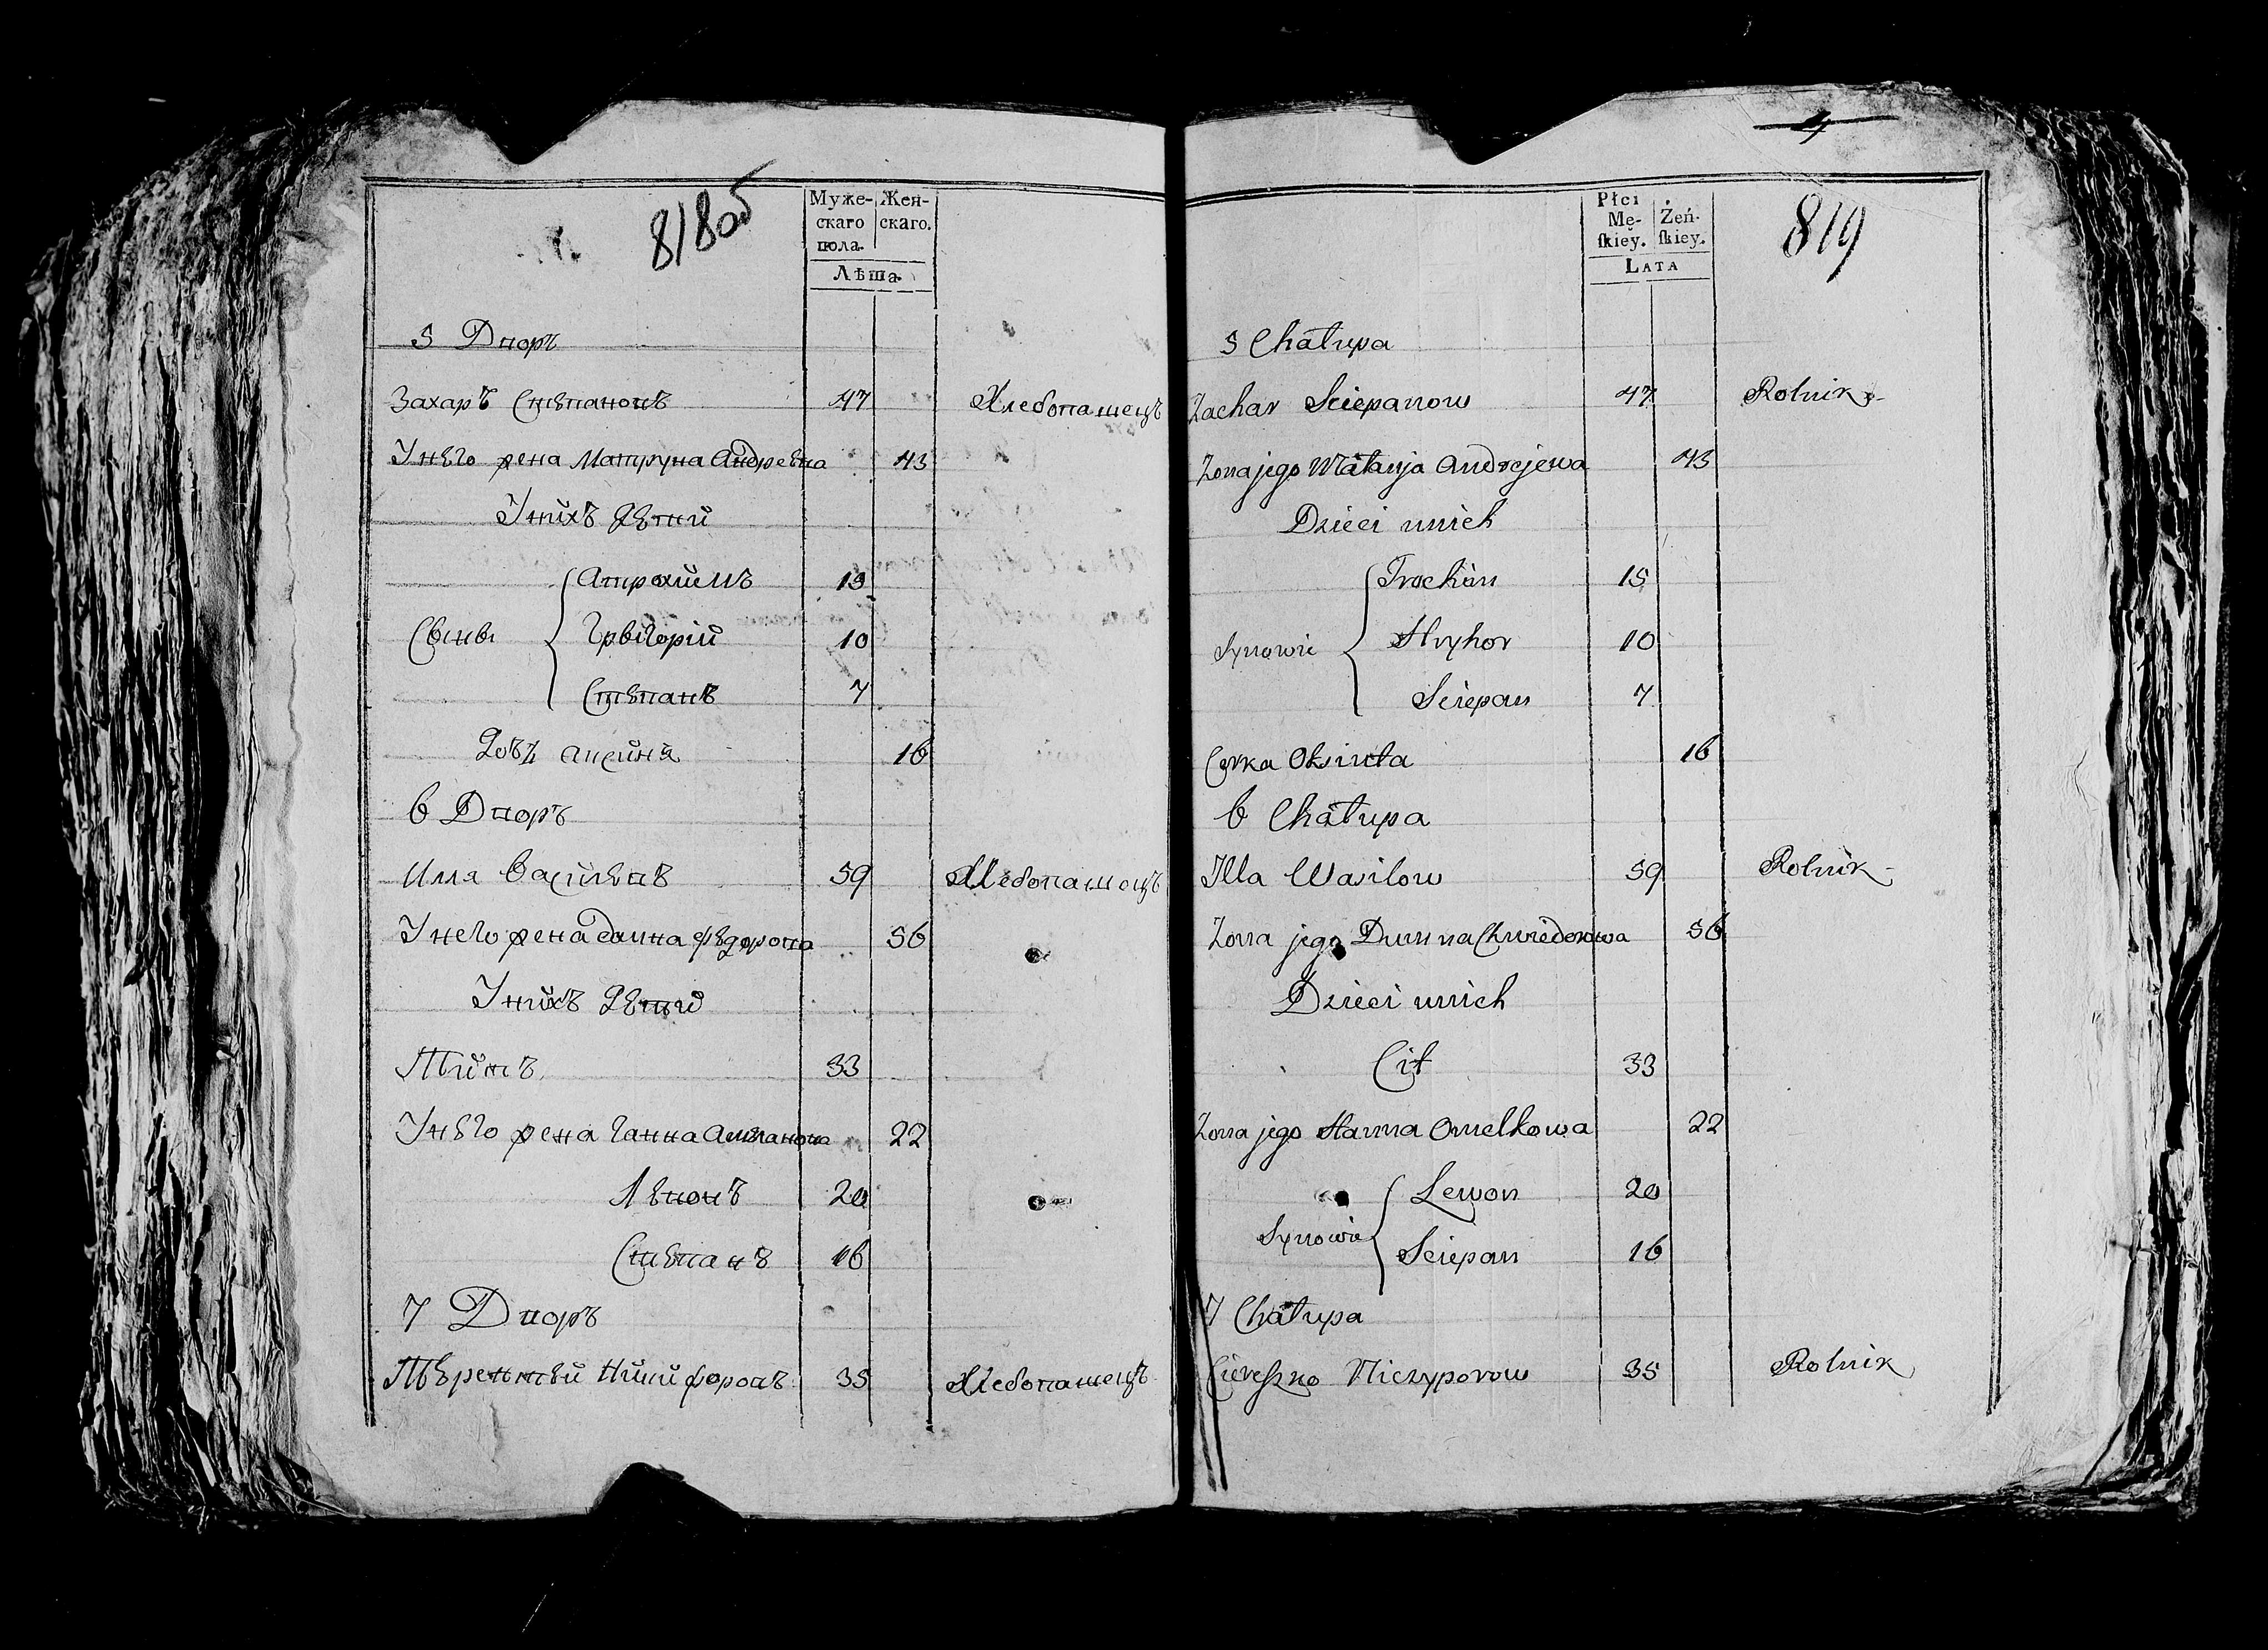 818об
Муже-
скаго
пола.
Жен-
скаго.
Лѣта.
5 Дворъ
Захаръ Стѣпановъ 47 Хлебопашецъ
У нѣго жена Матруна Андрѣвна 43
У нихъ Дѣтий
Сыны
Атрохимъ 15
Грыгорий 10
Стѣпанъ 7
Дочь Аксиня 16
6 Дворъ
Илла Василѣвъ 59 Хлебопашецъ
У него жена Фѣдорова 56
У нихъ Дѣтий
Титъ 33
У нѣго жена Ганна 22
Лѣвонъ 20
Стѣпанъ 16
7 Дворъ
Никифоровъ 35 Хлебопашецъ
4
819
Płci
Mę-
ſkiey.
Żeń-
ſkiey.
Lata
5 Chałupa
Zachar Sciepanow 47 Rolnik
Zona jego Andrejewa 43
Dzieci unich
Synowie
Trochim 15
Hryhor 10
Sciepan 7
Corka Oksinta 16
6 Chałupa
Illa Wasilow 59 Rolnik
Zona jego Chwiedorowa 56
Dzieci unich
Cit 33
Zona jego Hanna Omelkowa 22
Synowie
Lewon 20
Sciepan 16
7 Chałupa
Cireszko Niczyporow 35 Rolnik